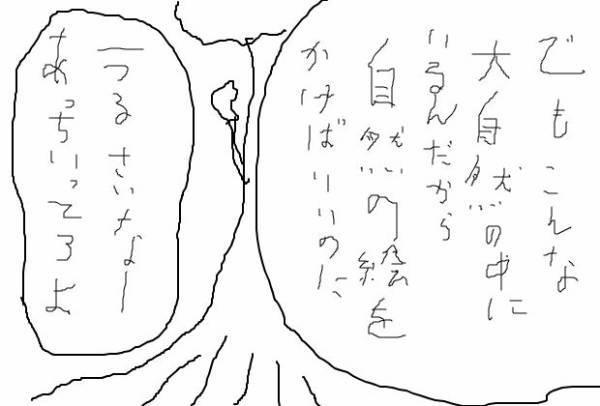 でもこんな
大自然の中に
いるんだから
自然の絵を
かけばいいのに
うるさいなー
あっちいってろよ